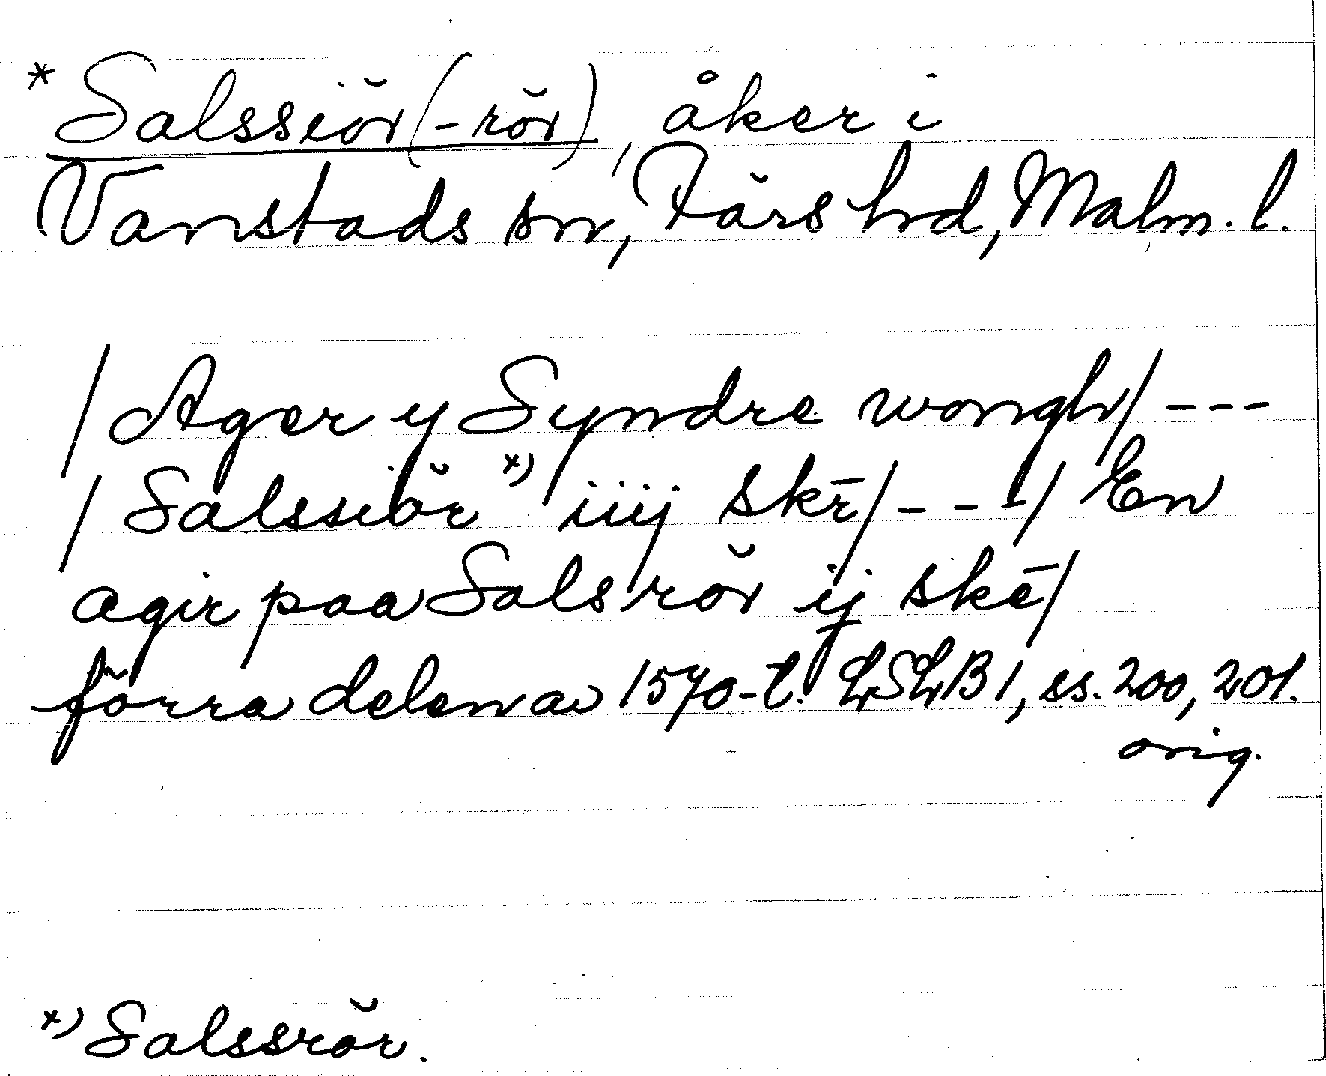 *Salssiör (-rör), åker i
Vanstads sn, Färs hrd, Malm. l.
/Ager y Syndre wongh/ ---
/Salssiör *) iiij skē/ - - -/ En
agir paa Sals rör ij skē/
förra delen av 1570-t. LSLB 1, ss. 200, 201.
orig.
*) Salssrör.